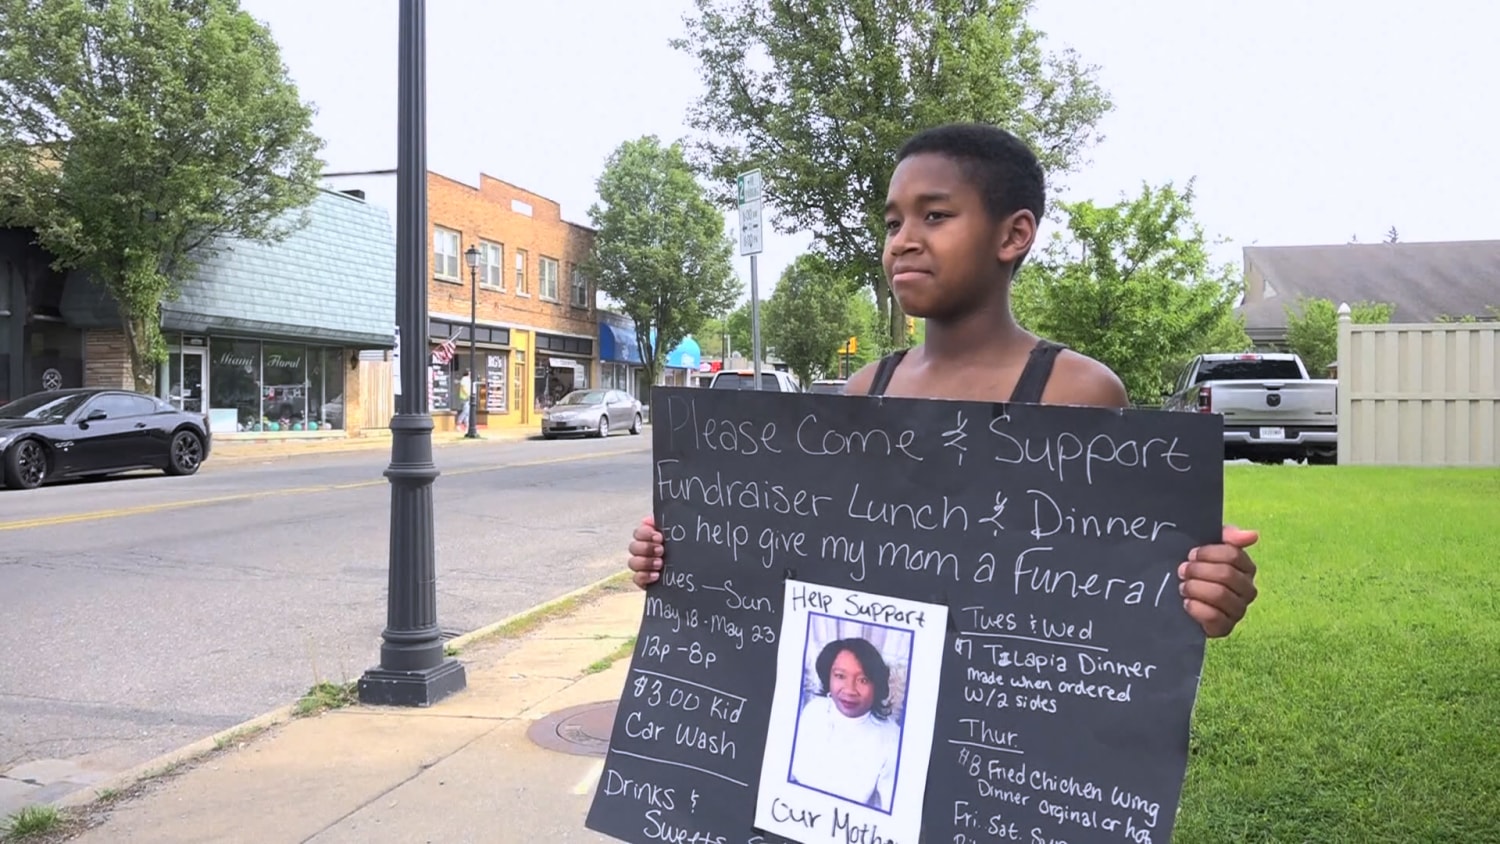 Miami Floral
Please Come & Support
Fundraiser Lunch & Dinner
to help give my mom a Funeral
Tues. - Sun.
May 18 - May 23
12p - 8p
$3.00 Kid
Car Wash
Drinks &
Sweets
Help Support
Our Mothe
Tues & Wed
$7 Tilapia Dinner
made when ordered
W/2 sides
Thur.
$8 Fried Chicken Wing
Dinner orginal or hot
Fri. Sat. Sun